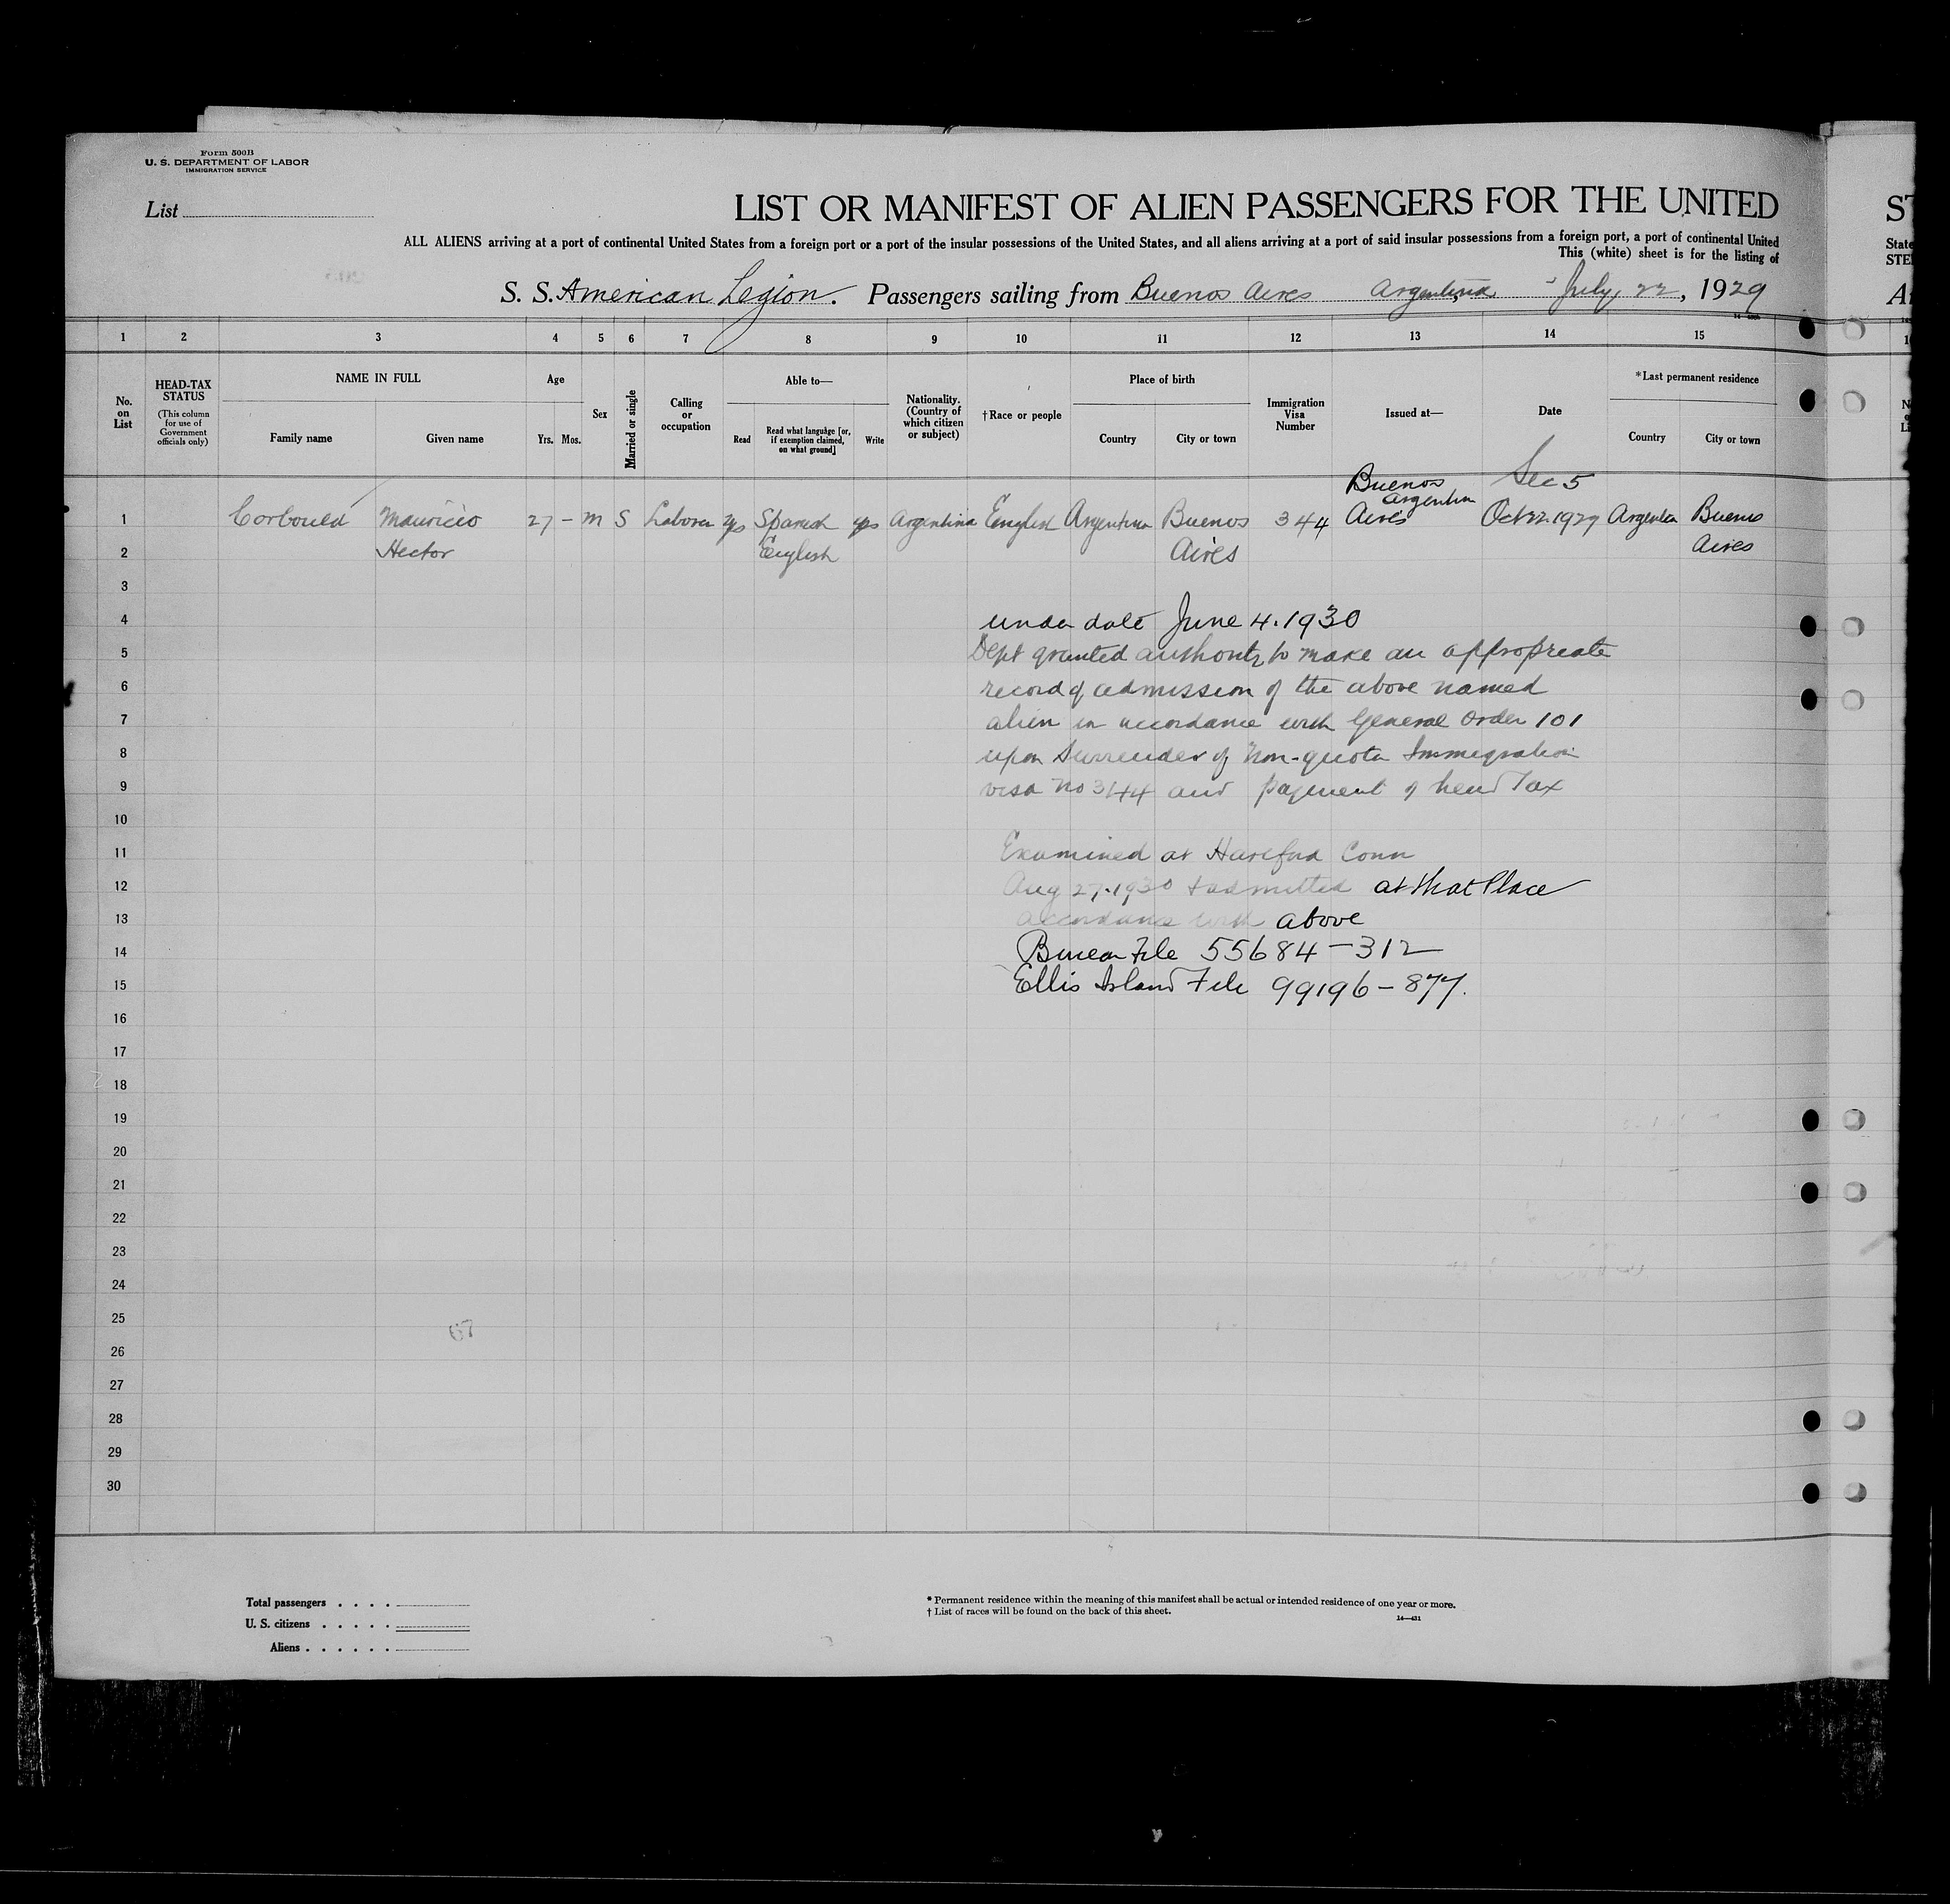 Form 500B
U. S. DEPARTMENT OF LABOR
IMMIGRATION SERVICE
List
LIST OR MANIFEST OF ALIEN PASSENGERS FOR THE UNITED
ST
ALL ALIENS arriving at a port of continental United States from a foreign port or a port of the insular possessions of the United States, and all aliens arriving at a port of said insular possessions from a foreign port, a port of continental United
State
This (white) sheet is for the listing of
STE
S. S. American Legion. Passengers sailing from Buenos Aires Argentina July, 22, 1929
1 2 3 4 5 6 7 8 9 10 11 12 13 14 15
No. on List
HEAD-TAX STATUS
(This column for use of Government officials only)
NAME IN FULL
Family name
Given name
Age
Yrs. Mos.
Sex
Married or single
Calling or occupation
Able to—
Read
Read what language [or, if exemption claimed, on what ground]
Write
Nationality. (Country of which citizen or subject)
†Race or people
Place of birth
Country
City or town
Immigration Visa Number
Issued at—
Date
*Last permanent residence
Country
City or town
Buenos Sec 5
Argentina
1 Corbould Mauricio 27 - m S Laborer yes Spanish yes Argentina English Argentina Buenos 344 Aires Oct 22 1929 Argentina Buenos
2 Hector English Aires Aires
3
4 under date June 4. 1930
5 Dept granted authority to make an appropreate
6 record of admission of the above named
7 alien in accordance with General Order 101
8 upon Surrender of Non-quota Immigration
9 visa No 344 and payment of head Tax
10
11 Examined at Hartford Conn
12 Aug 27. 1930 + admitted at that Place
13 accordance with above
14 Bureau File 55684-312
15 Ellis Island File 99196-877.
16
17
18
19
20
21
22
23
24
25
67
26
27
28
29
30
Total passengers . . . .
U. S. citizens . . . . .
Aliens . . . . . .
* Permanent residence within the meaning of this manifest shall be actual or intended residence of one year or more.
† List of races will be found on the back of this sheet.
14—431